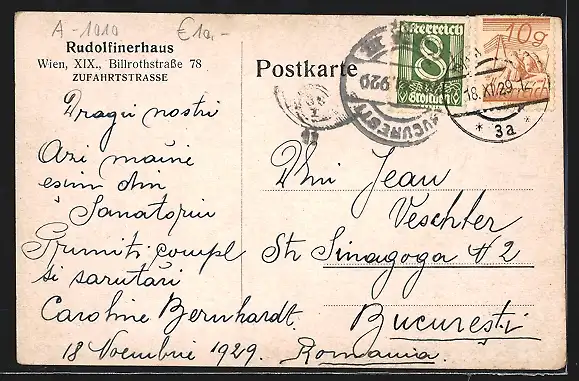 A-1010
€10,-
Rudolfinerhaus
Wien, XIX., Billrothstraße 78
ZUFAHRTSTRASSE
Postkarte
Österreich
8
Groschen
10g
18.XI.29
* 3a *
BUCUREȘTI
Dragii nostri
Azi maine
esim din
Sanatoriu
Primiti compl
si sarutări
Caroline Bernhardt.
18 Noembrie 1929.
Dlui Jean
Veschter
Str Sinagoga № 2
București
Romania.